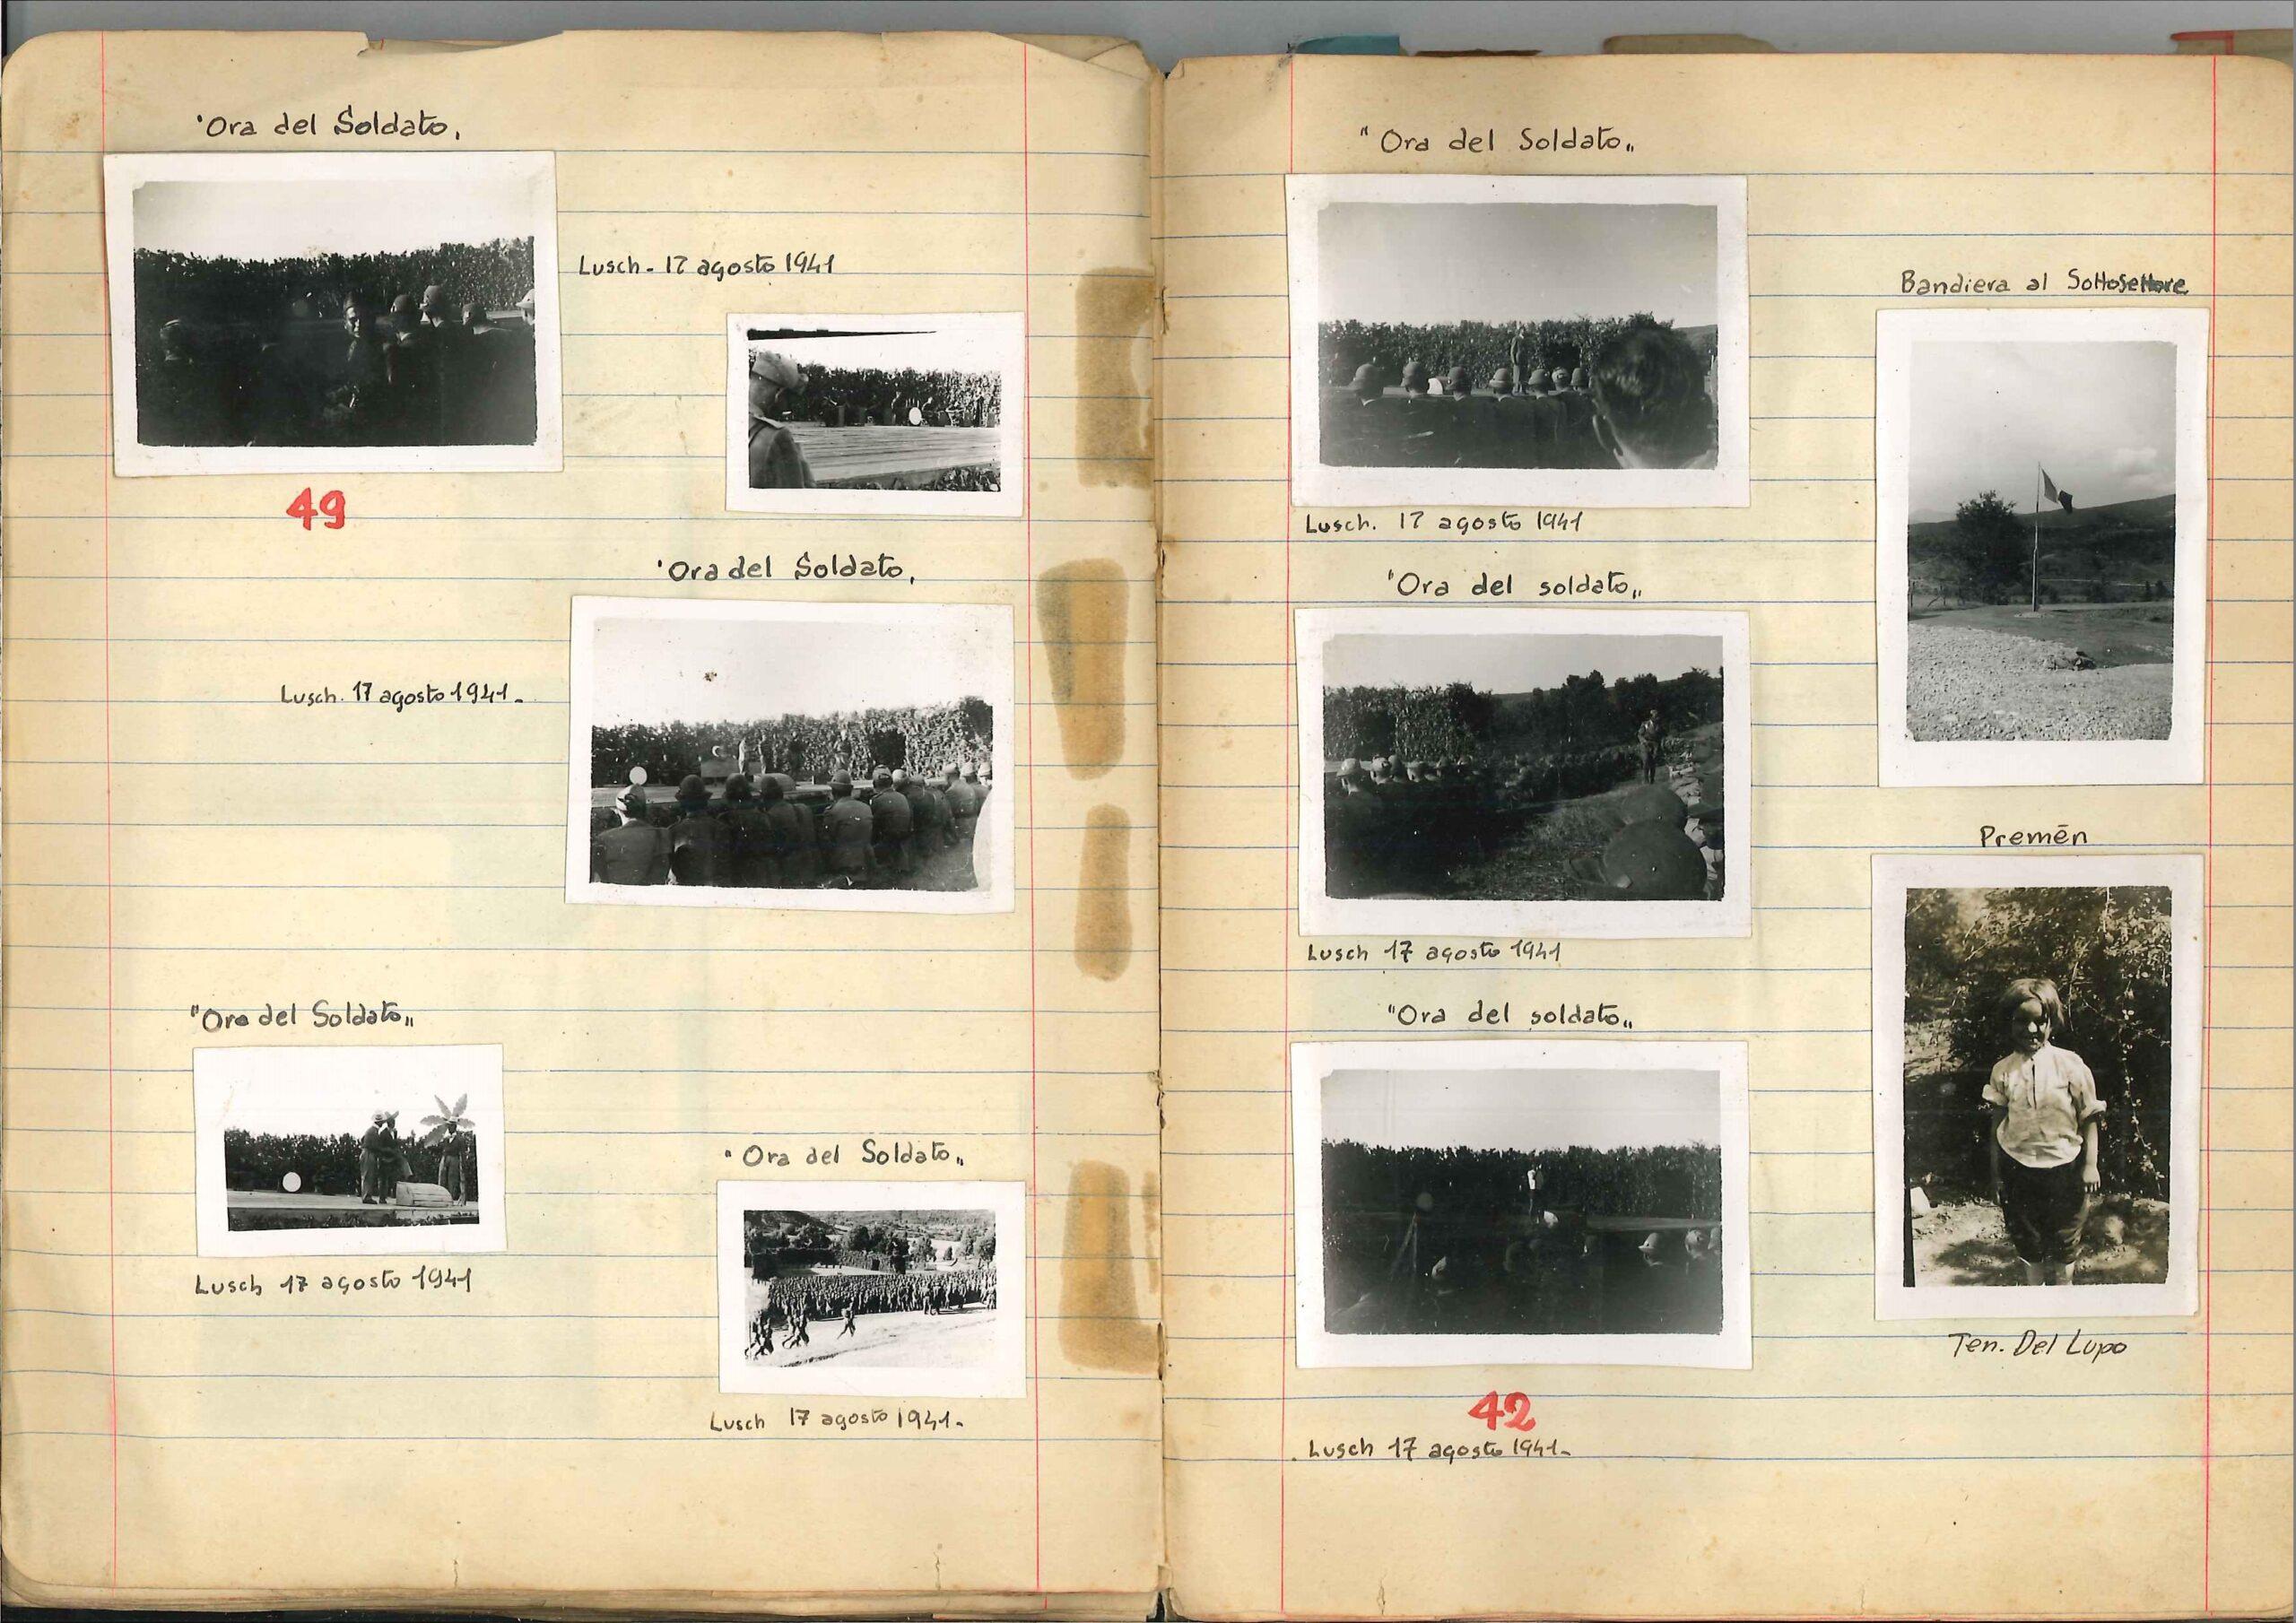 'Ora del Soldato,
Lusch - 17 agosto 1941
49
'Ora del Soldato,
Lusch. 17 agosto 1941 -
"Ora del Soldato„
Lusch 17 agosto 1941
"Ora del Soldato„
Lusch 17 agosto 1941 -
"Ora del Soldato„
Lusch. 17 agosto 1941
"Ora del soldato„
Lusch 17 agosto 1941
"Ora del soldato„
42
Lusch 17 agosto 1941 -
Bandiera al Sottosettore
Premēn
Ten. Del Lupo